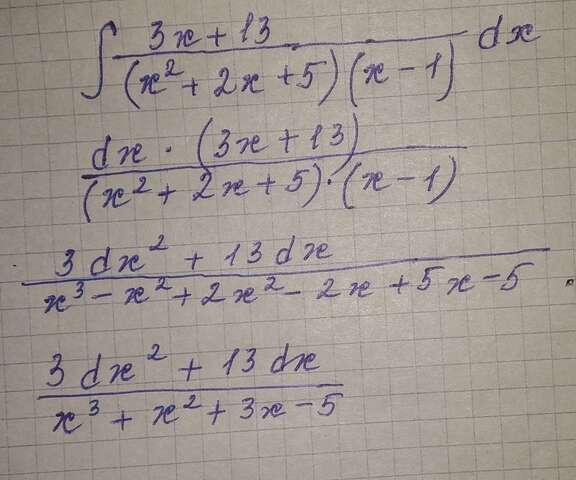 ∫ (3x + 13) / ((x² + 2x + 5)(x - 1)) dx
(dx · (3x + 13)) / ((x² + 2x + 5) · (x - 1))
(3dx² + 13dx) / (x³ - x² + 2x² - 2x + 5x - 5)
(3dx² + 13dx) / (x³ + x² + 3x - 5)